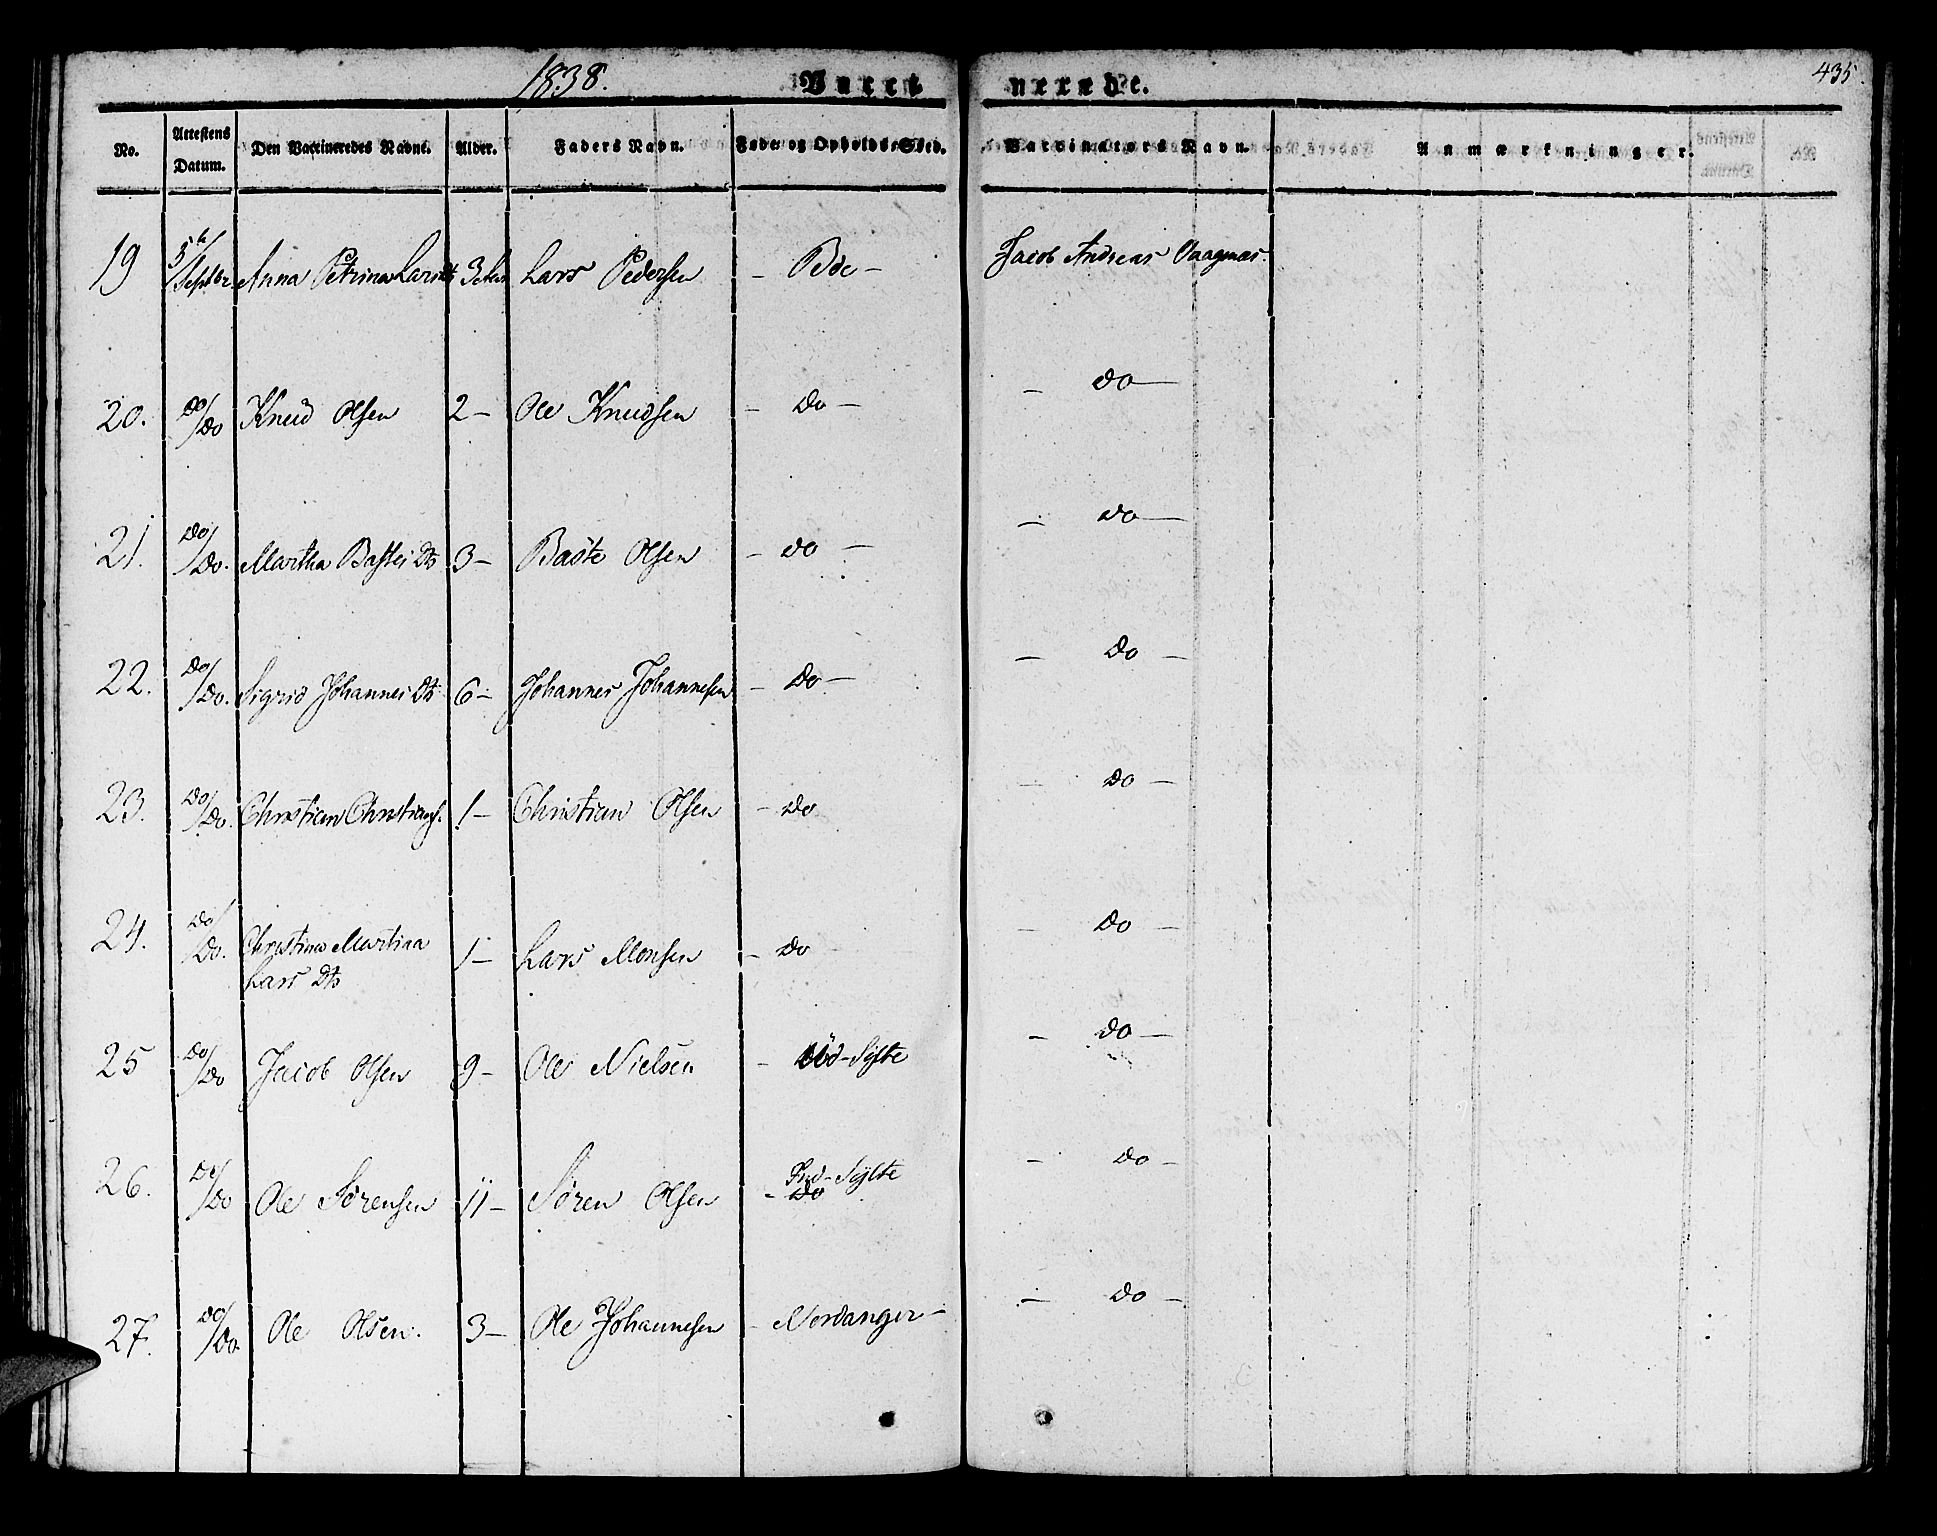 1838. Vacci nerede. 435.
No. Attestens Datum. Den Vaccineredes Navne. Alder. Faders Navn. Føde og Opholds-Sted. Vaccinators Navn. Anmærkninger.
19 5te/Septbr Anna Petrina Larsdtr 3 Lars Pedersen – Bøe – Jacob Andreas
20. Do/Do Knud Olsen 2 – Ole Knudsen – Do – – Do –
21. Do/Do. Martha Basteidtr 3 – Baste Olsen – Do – – Do –
22. Do/Do. Sigrid Johannesdtr 6 – Johannes Johannesen – Do – – Do –
23. Do/Do. Christian Christians. 1 – Christian Olsen – Do – Do –
24. Do/Do. Christina Martina 1 – Lars Monsen – Do – Do –
Lars Dtr
25 Do/Do Jacob Olsen 9 – Ole Nielsen – Sylte – Do –
26. Do/Do Ole Sörensen 11 – Sören Olsen – Sylte – Do –
Do
27. Do/Do. Ole Olsen. 3 – Ole Johannesen – Nordanger – – Do –